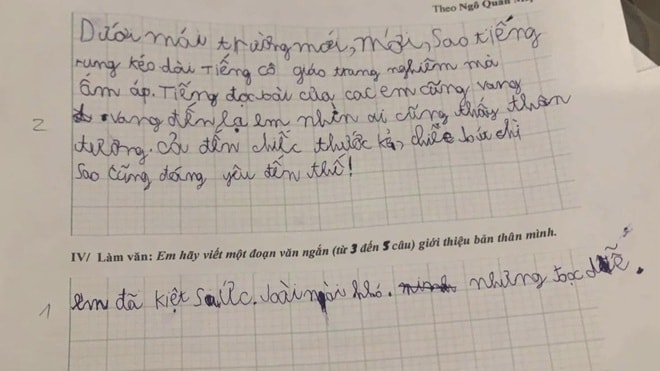 Theo Ngô Quân M
Dưới mái trường mới, mới, sao tiếng
rung kéo dài Tiếng cô giáo trang nghiêm mà
ấm áp. Tiếng đọc bài của các em cũng vang
vang đến lạ em nhìn ai cũng thấy thân
2
tương. Cả đến chiếc thước kẻ, chiếc bút chì
sao cũng đáng yêu đến thế!
IV/ Làm văn: Em hãy viết một đoạn văn ngắn (từ 3 đến 5 câu) giới thiệu bản thân mình.
1
em đã kiệt sức. bài khó. những đọc dễ.